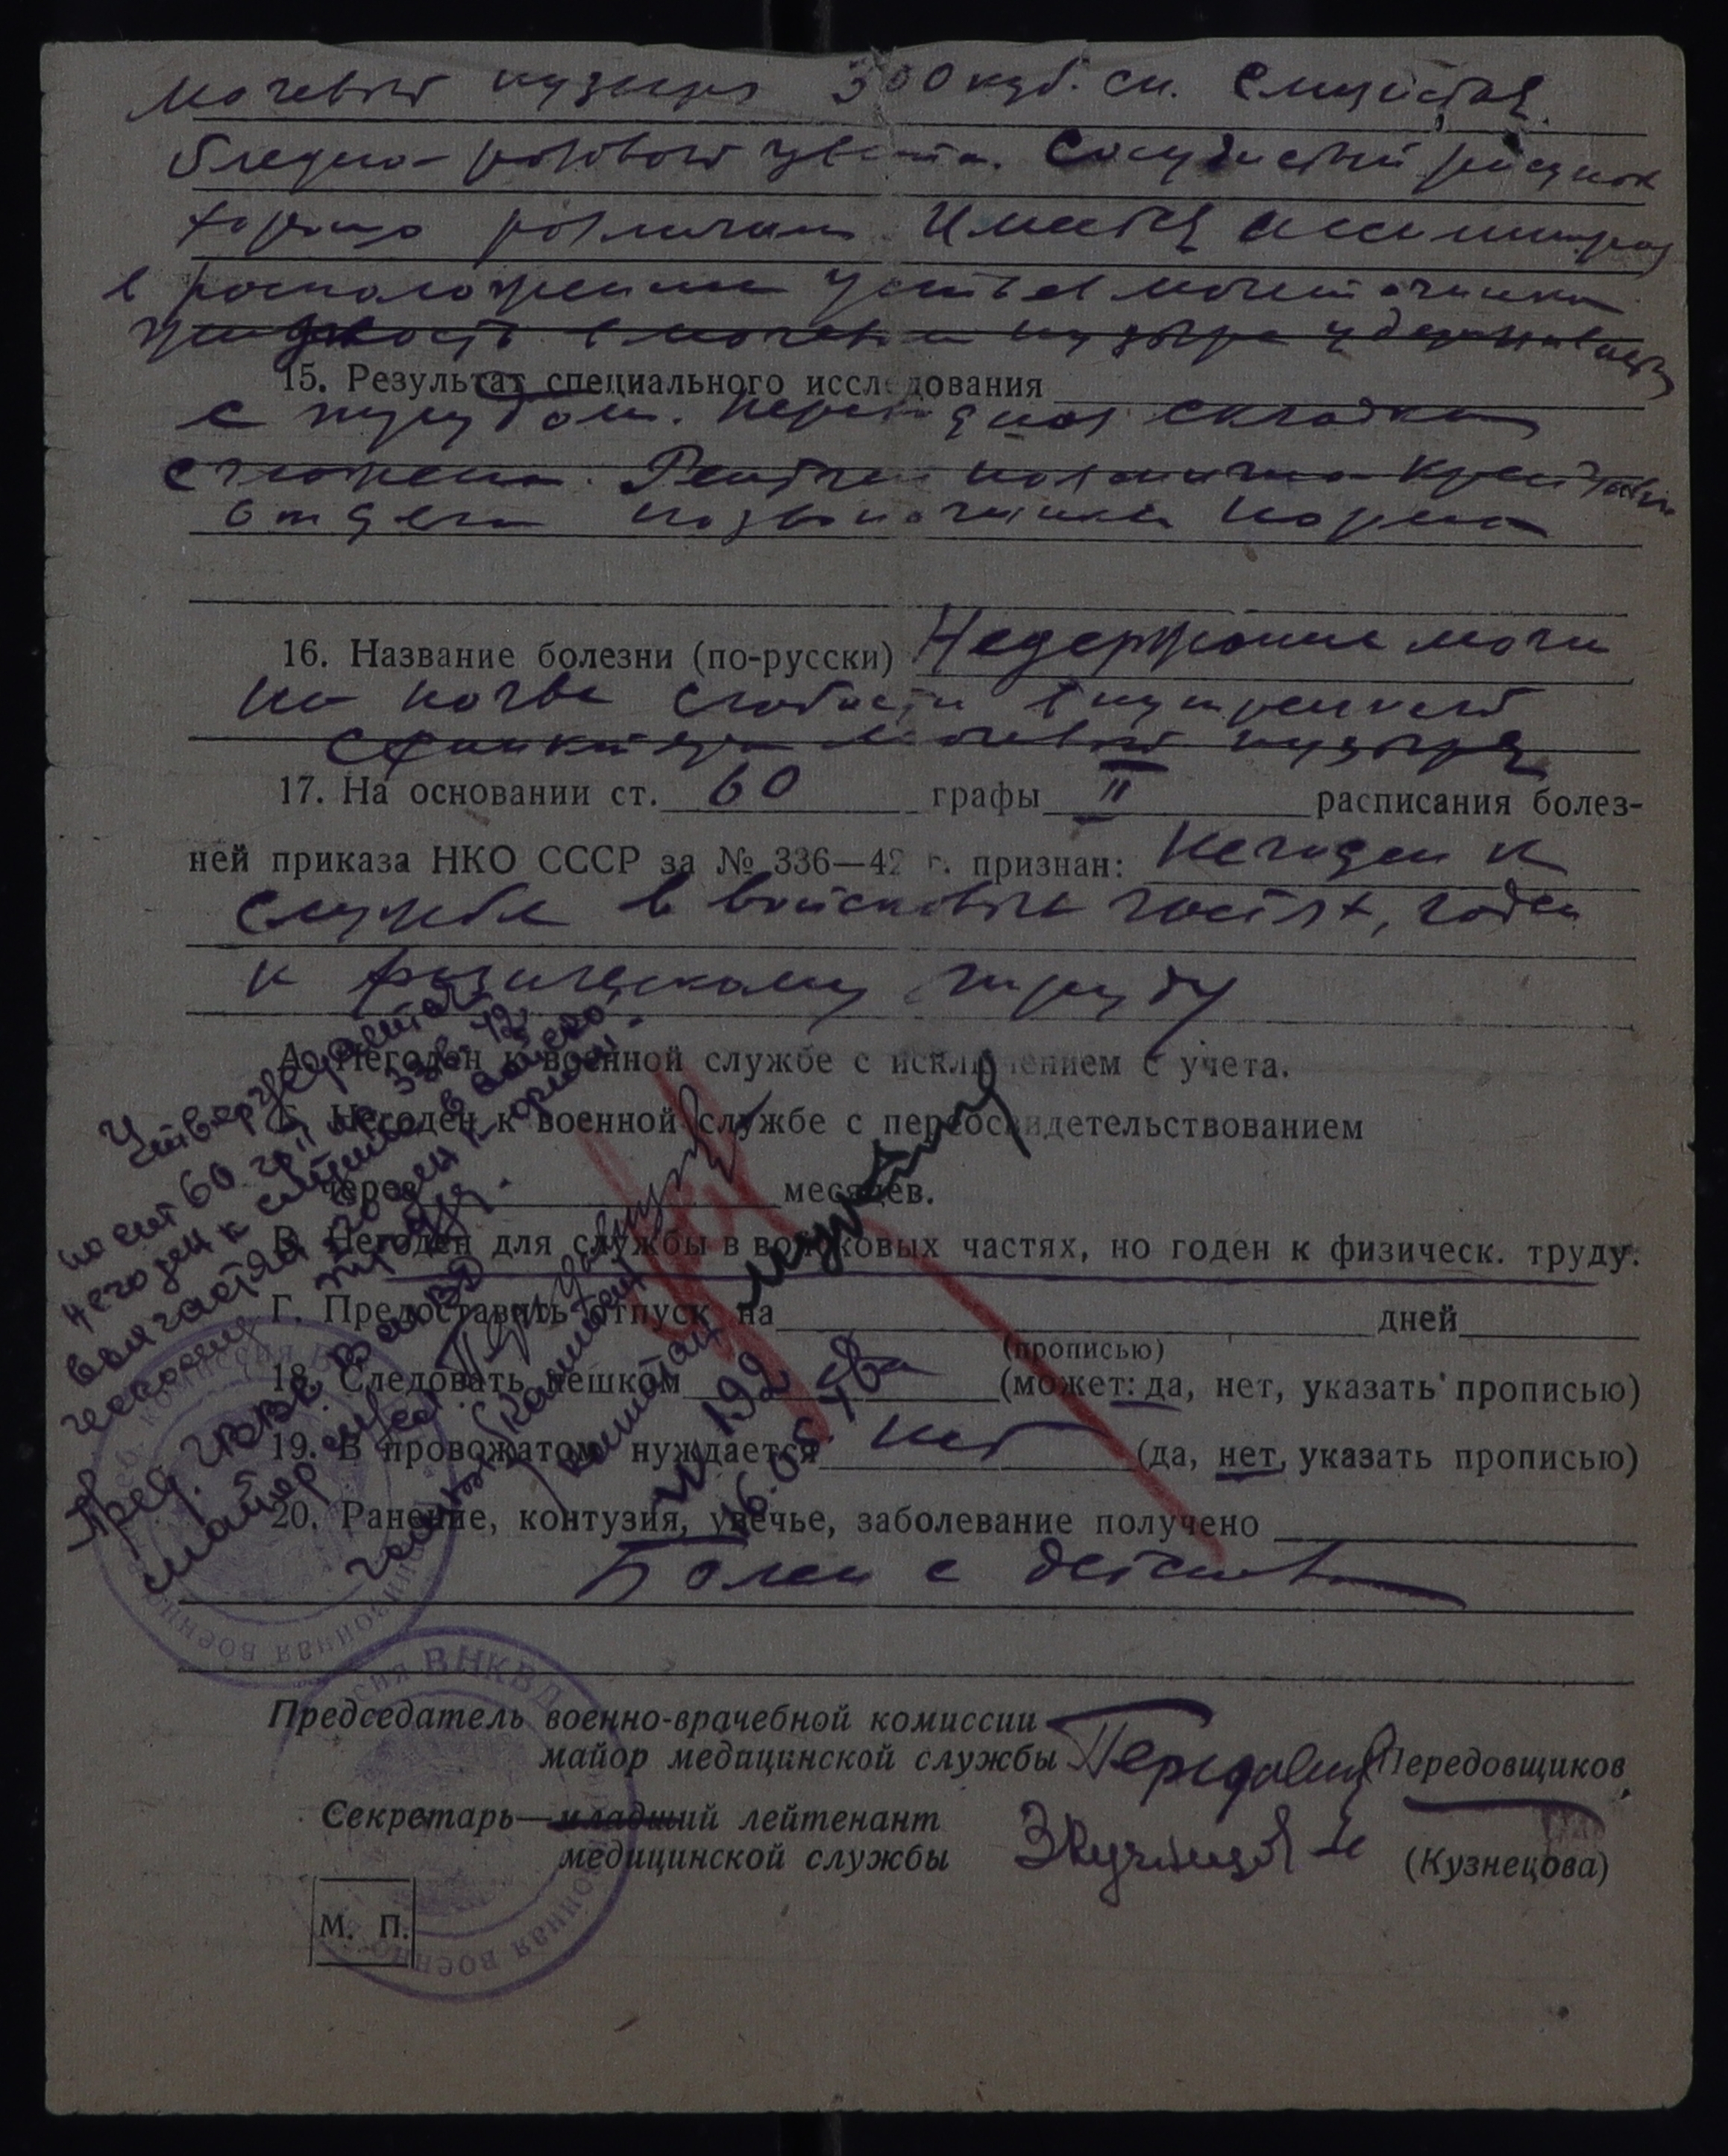 мочевого пузыря 300 куб. см. Слизистая
бледно-розового цвета. Сосудистый рисунок
хорошо различим. Имеется
в расположении устьев мочеточника
жидкость в мочевом пузыре удерживает
15. Результат специального исследования
с трудом. Переходная складка
сглажена. Рентген
отдела позвоночника норма
16. Название болезни (по-русски) Недержание мочи
на почве слабости внутреннего
сфинктера мочевого пузыря
17. На основании ст. 60 графы II расписания болез-
ней приказа НКО СССР за № 336—42 г. признан: Негоден к
службе в войсковых частях, годен
к физическому труду
А. Негоден к военной службе с исключением с учета.
Б. Негоден к военной службе с переосвидетельствованием
через месяцев.
В. Негоден для службы в войсковых частях, но годен к физическ. труду.
Г. Предоставить отпуск на дней
(прописью)
18. Следовать пешком да (может: да, нет, указать прописью)
19. В провожатом нуждается нет (да, нет, указать прописью)
20. Ранение, контузия, увечье, заболевание получено
Болен с детства
Утверждается
по ст 60 гр II пр 336-42
негоден к службе в войско-
вых частях годен к физи-
ческому труду.
Пред. ГВВК
майор м/сл
капитан
№ 192
Председатель военно-врачебной комиссии
майор медицинской службы Передовщиков
Секретарь—младший лейтенант
медицинской службы Экузнецова (Кузнецова)
М. П.